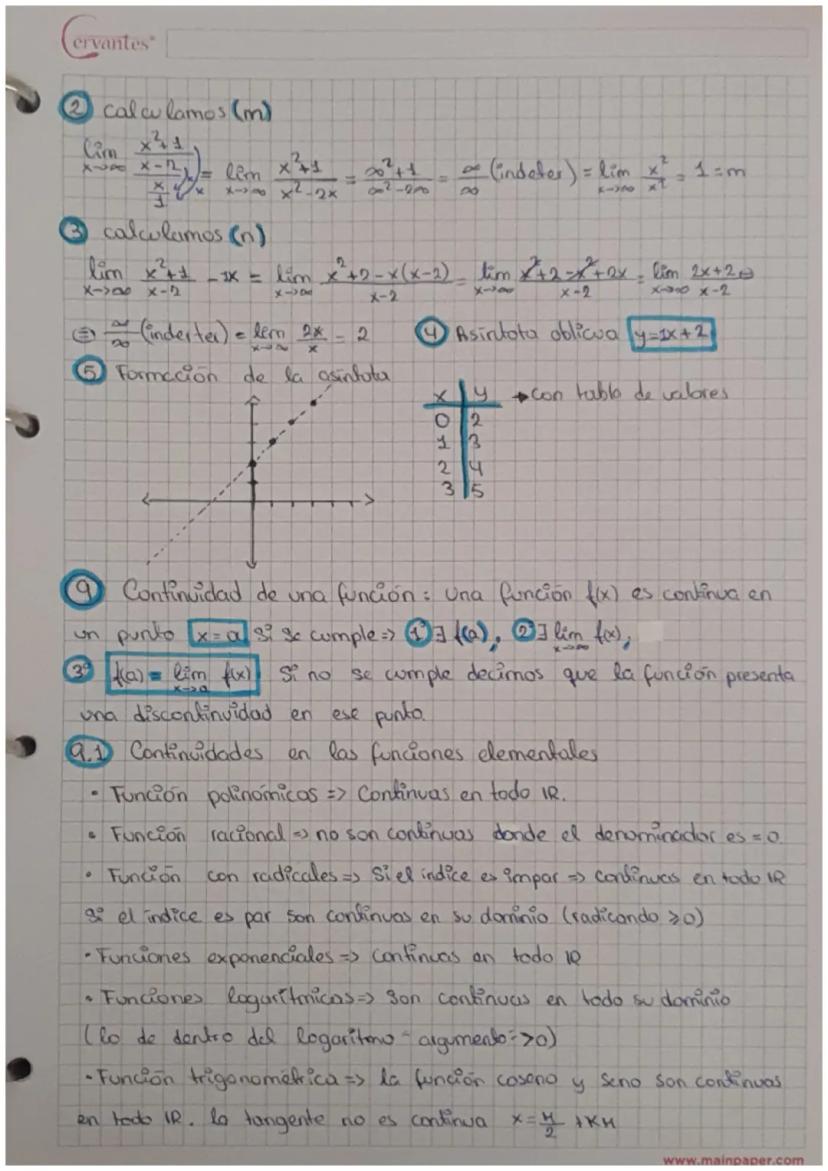 Cervantes®
② calculamos (m)
lim x→∞ ((x²+1)/(x-2))/(x/1) = lim x→∞ (x²+1)/(x²-2x) = (∞²+1)/(∞²-2∞) = ∞/∞ (indeter) = lim x→∞ x²/x² = 1 = m
③ calculamos (n)
lim x→∞ (x²+1)/(x-2) - 1x = lim x→∞ (x²+2-x(x-2))/(x-2) = lim x→∞ (x²+2-x²+2x)/(x-2) = lim x→∞ (2x+2)/(x-2) ⊜
⊜ ∞/∞ (inderter) = lim x→∞ 2x/x = 2 ④ Asíntota oblicua y=1x+2
⑤ Formación de la asíntota
x y → con tabla de valores
0 2
1 3
2 4
3 5
⑨ Continuidad de una función: una función f(x) es continua en
un punto x=a si se cumple => 1º ∃ f(a), 2º ∃ lim x→∞ f(x),
3º f(a) = lim x→a f(x) Si no se cumple decimos que la función presenta
una discontinuidad en ese punto.
9.1 Continuidades en las funciones elementales
• Función polinómicas => Continuas en todo IR.
• Función racional => no son continuas donde el denominador es = 0.
• Función con radicales => Si el índice es impar => continuas en todo IR
Si el índice es par son continuas en su dominio (radicando ≥0)
• Funciones exponenciales => Continuas en todo IR
• Funciones logarítmicas => Son continuas en todo su dominio
(lo de dentro del logaritmo - argumento - >0)
• Función trigonométrica => la función coseno y seno son continuas
en todo IR. la tangente no es continua x = π/2 + Kπ
www.mainpaper.com